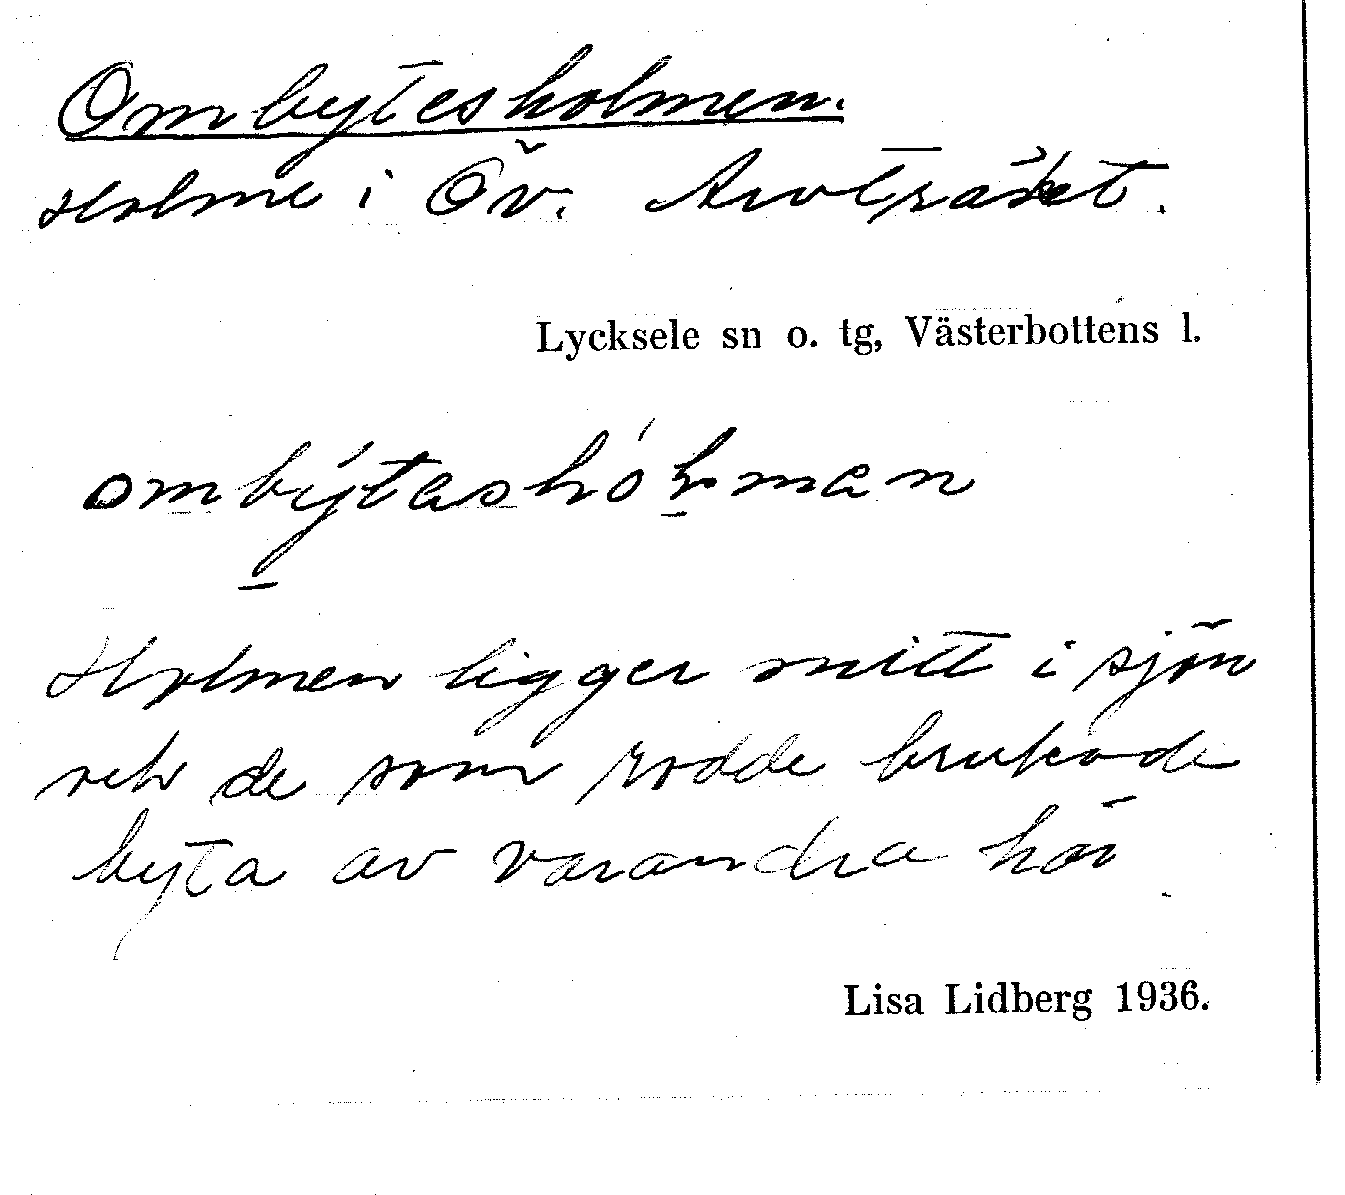 Ombytesholmen.
Holme i Öv. Arvträsket.
Lycksele sn o. tg, Västerbottens l.
Holmen ligger mitt i sjön
och de som rodde brukade
byta av varandra här
Lisa Lidberg 1936.